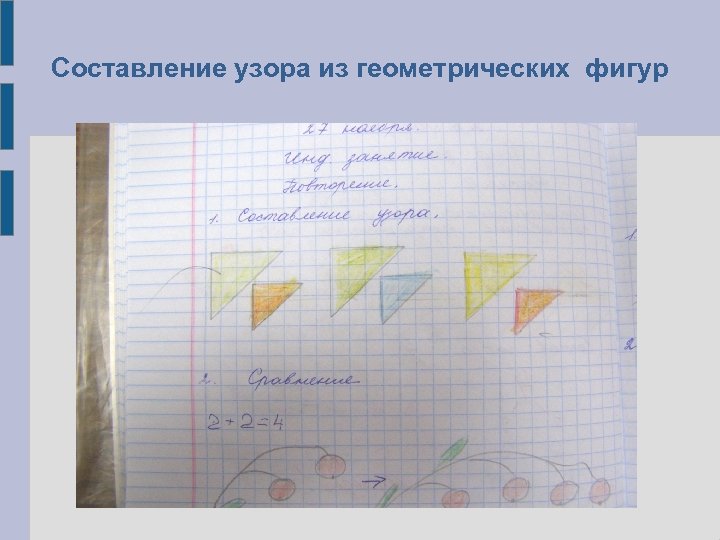 Составление узора из геометрических фигур
27 ноября.
Инд. занятие.
Повторение.
1. Составление узора.
1.
2. Сравнение
2
2+2=4